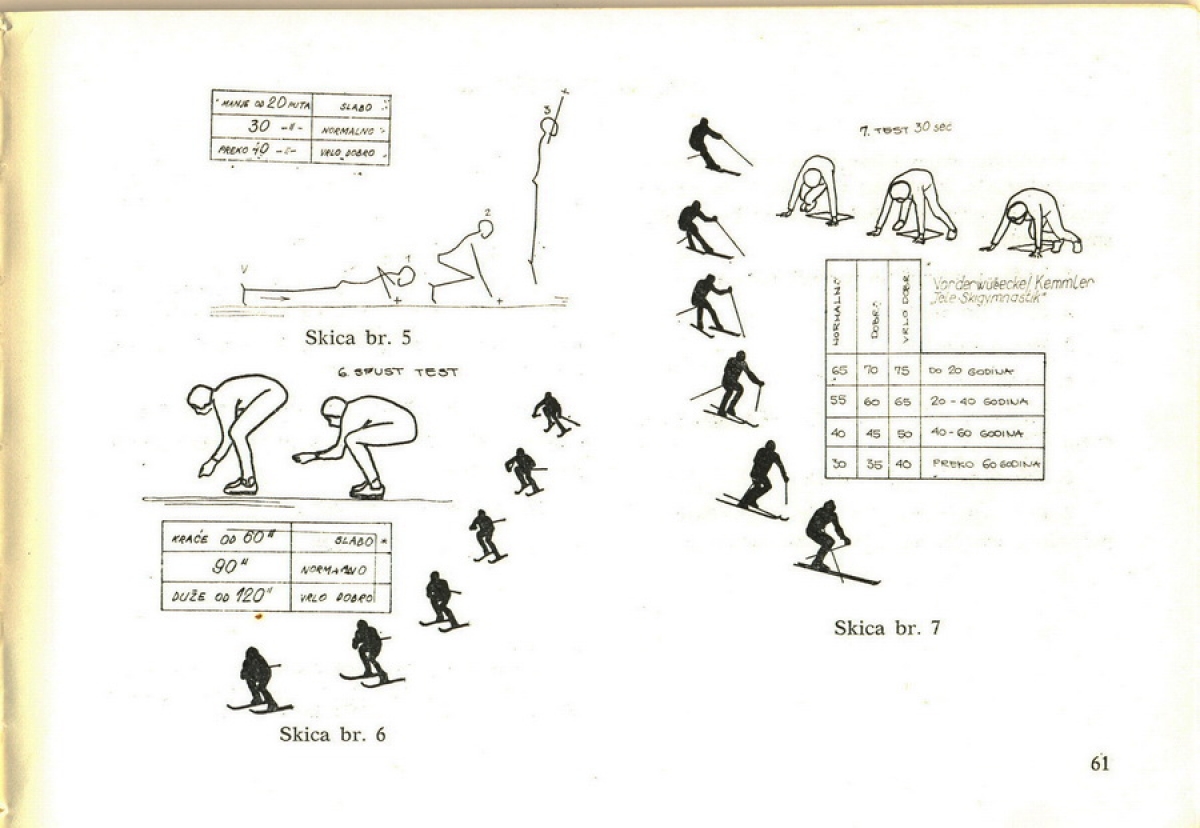 MANJE OD 20 PUTA SLABO
30 -"- NORMALNO
PREKO 40 -"- VRLO DOBRO
1
2
3
V
Skica br. 5
6. SPUST TEST
KRAĆE OD 60" SLABO
90" NORMALNO
DUŽE OD 120" VRLO DOBRO
Skica br. 6
7. TEST 30 sec
Kemmler
"Tele-Skigymnastik"
NORMALNO DOBRO VRLO DOBR.
65 70 75 DO 20 GODINA
55 60 65 20-40 GODINA
40 45 50 40-60 GODINA
30 35 40 PREKO 60 GODINA
Skica br. 7
61